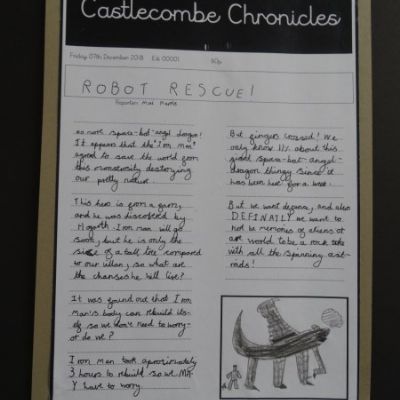 Castlecombe Chronicles
Friday 07th December 2018 Edi 00001 80p
ROBOT RESCUE!
Reporter: Mat
no more space-bat-angel dragon!
It appears that the "Iron Man"
agreed to save the world from
this monstrosity destorying
our pretty nature
This hero is from a farm,
and he was discovered by
Hogarth Iron man will go
soon, but he is only the
size of a tall tree compared
to our vilian, so what are
the chanses he will live?
It was found out that Iron
Man's body can rebuild its-
elf so we don't need to worry-
or do we?
Iron Man took aproximately
3 hours to rebuild so we MA-
Y have to worry.
But fingers crossed! We
only know 1% about this
giant space-bat-angel-
dragon thingy since it
has been here for a week.
But we want defence, and also
DEFINATLY we want to
not be memories of aliens or
are world to be a rock take
with all the spinning ast-
roids!